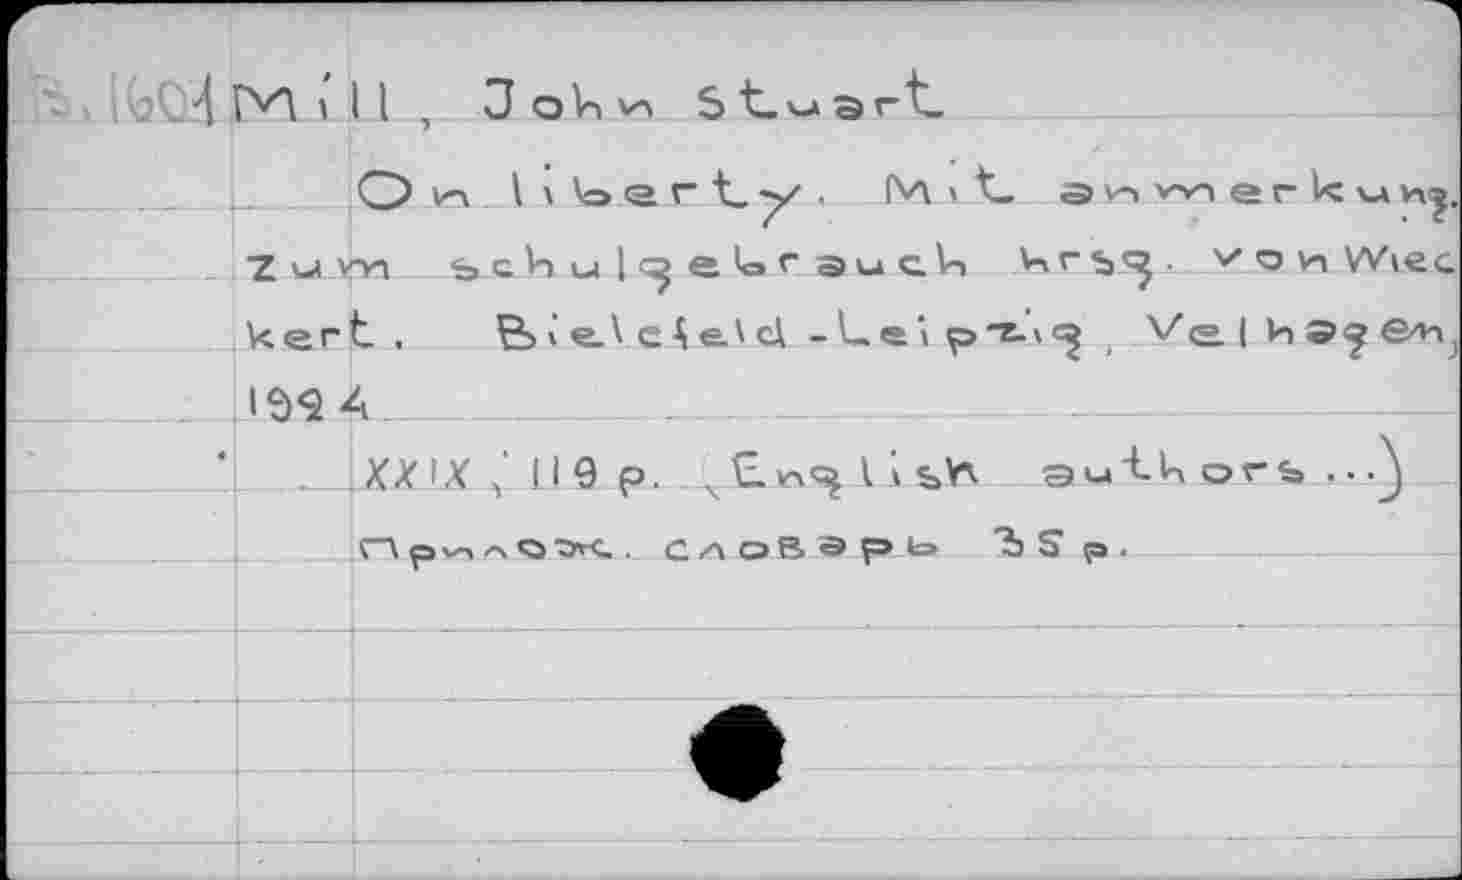 Mill, John Stuart
On liberty. Mit anmerkung.
zum schulgebrauch hrsg. von Wiec
kert. Bielefeld-Leipzig, Velhagen,
1924
XXIX, 119 p. (English authors...)
Прилож. словарь 35 p.